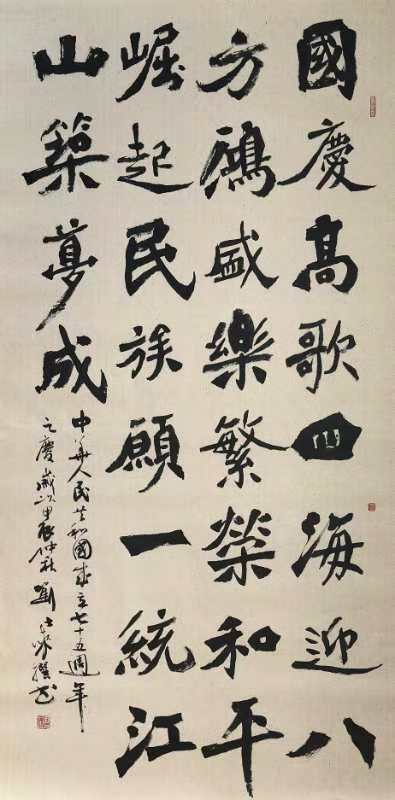 國慶高歌四海迎八
方鴻盛樂繁榮和平
崛起民族願一統江
山築夢成
中華人民共和國成立七十五週年
之慶歲次甲辰仲秋劉士 撰書